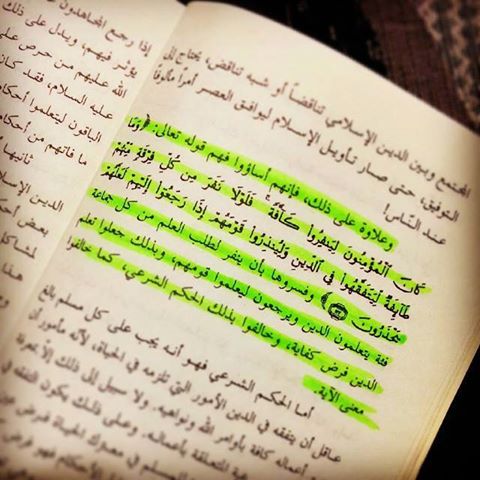 إذا رجع المجاهدون
يؤثر فيهم، ويدل على ذلك
الله عليهم من حرص على
عليه السلام، فقد كان
الباقون ليتعلموا أحكام
ما فاتهم من أحكام
ثانيها
الدين الإسلا
بعض أحك
لمشاكل
هذا
المجتمع وبين الدين الإسلامي تناقضاً أو شبه تناقض، يحتاج إلى
التوفيق، حتى صار تأويل الإسلام ليوافق العصر أمراً مألوفاً
عند الناس!
وعلاوة على ذلك، فإنهم أساؤوا فهم قوله تعالى: ﴿وَمَا
كَانَ ٱلْمُؤْمِنُونَ لِيَنفِرُوا۟ كَآفَّةً ۚ فَلَوْلَا نَفَرَ مِن كُلِّ فِرْقَةٍ مِّنْهُمْ
طَآئِفَةٌ لِّيَتَفَقَّهُوا۟ فِى ٱلدِّينِ وَلِيُنذِرُوا۟ قَوْمَهُمْ إِذَا رَجَعُوٓا۟ إِلَيْهِمْ لَعَلَّهُمْ
يَحْذَرُونَ﴾ وفسروها بأن ينفر لطلب العلم من كل جماعة
فئة يتعلمون الدين ويرجعون ليعلموا قومهم، وبذلك جعلوا تعلم
الدين فرض كفاية، وخالفوا بذلك الحكم الشرعي، كما خالفوا
معنى الآية.
أما الحكم الشرعي فهو أنه يجب على كل مسلم بالغ
عاقل أن يتفقه في الدين الأمور التي تلزمه في الحياة، لأنه مأمور أن
أعماله كافة بأوامر الله ونواهيه. ولا سبيل إلى ذلك إلا بمعرفة
المتعلقة بأعماله. وعلى ذلك يكون التفقه في
المسلم في معترك الحياة فرض عين
الأحكام فهو فرض